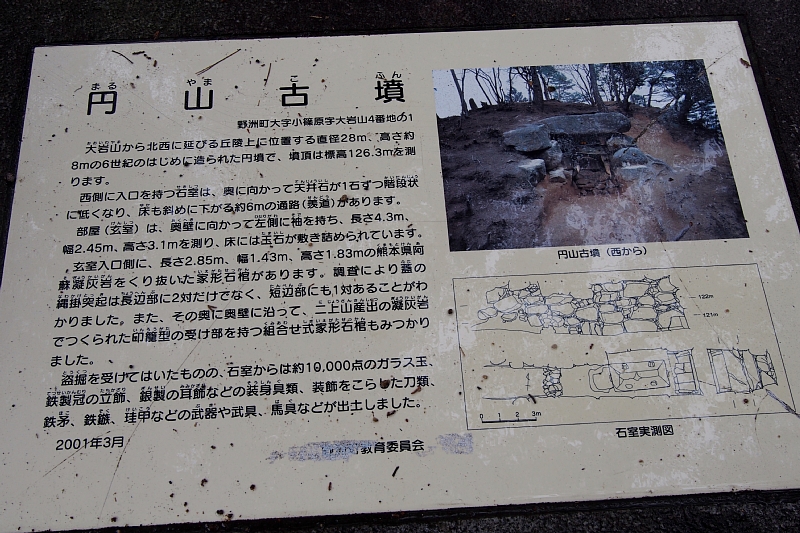 まる やま こ ふん
円 山 古 墳
野洲町大字小篠原字大岩山4番地の1
大岩山から北西に延びる丘陵上に位置する直径28m、高さ約
8mの6世紀のはじめに造られた円墳で、墳頂は標高126.3mを測
ります。
西側に入口を持つ石室は、奥に向かって天井石が1石ずつ階段状
に低くなり、床も斜めに下がる約6mの通路（羨道）があります。
部屋（玄室）は、奥壁に向かって左側に袖を持ち、長さ4.3m、
幅2.45m、高さ3.1mを測り、床には玉石が敷き詰められています。
玄室入口側に、長さ2.85m、幅1.43m、高さ1.83mの熊本県阿
蘇凝灰岩をくり抜いた家形石棺があります。調査により蓋の
縄掛突起は長辺部に2対だけでなく、短辺部にも1対あることがわ
かりました。また、その奥に奥壁に沿って、二上山産出の凝灰岩
でつくられた印籠型の受け部を持つ組合せ式家形石棺もみつかり
ました。
盗掘を受けてはいたものの、石室からは約10,000点のガラス玉、
鉄製冠の立飾、銀製の耳飾などの装身具類、装飾をこらした刀類、
鉄矛、鉄鏃、挂甲などの武器や武具、馬具などが出土しました。
2001年3月
教育委員会
円山古墳（西から）
122m
121m
0 1 2 3m
石室実測図